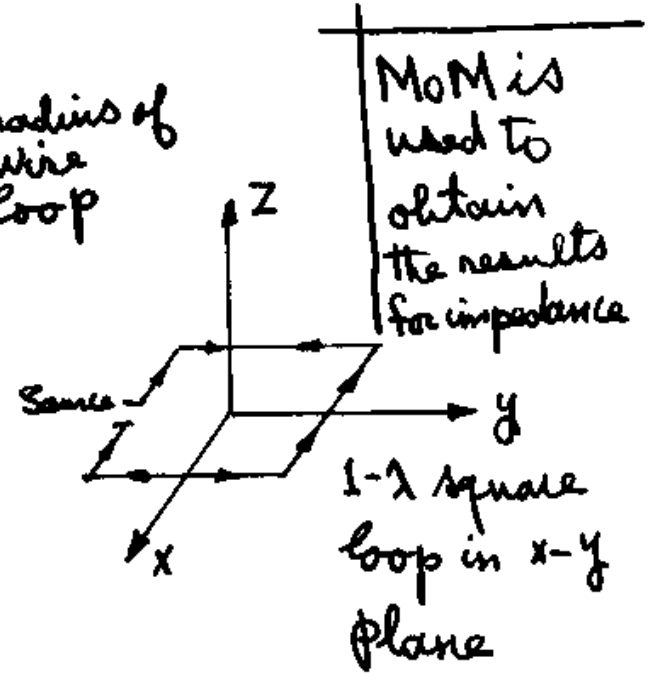 radius of
wire
loop
MoM is
used to
obtain
the results
for impedance
Z
Source
y
x
1-λ square
loop in x-y
plane